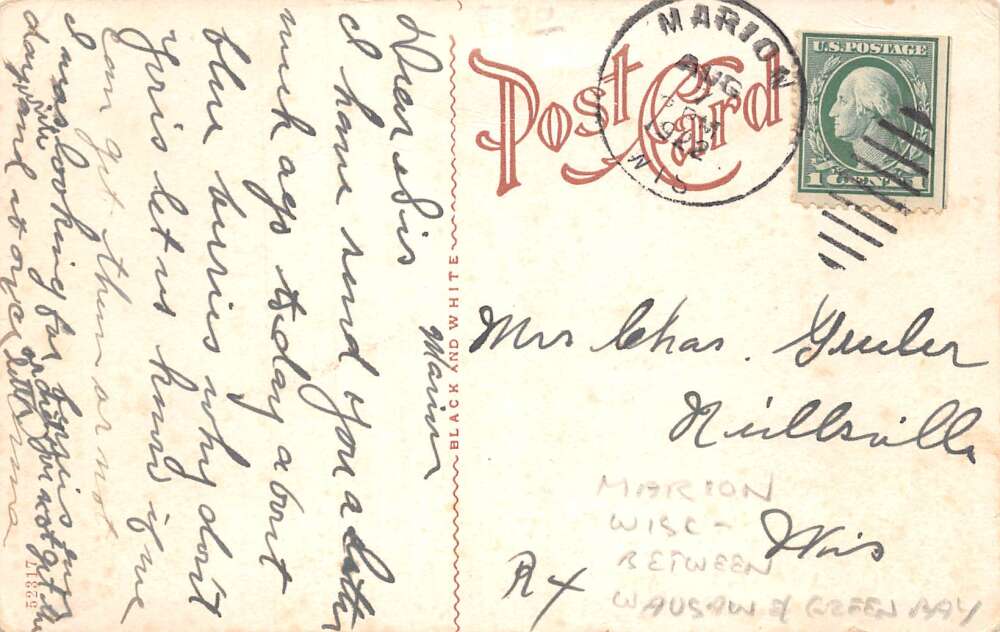 Marion
Dear Sis
I have send you a letter
week ago today about
blue burries why don't
yous let us know if we
can get them or not
I was looking for Louis every
day and
Post Card
MARION
AUG
1922
WIS
U.S. POSTAGE
1 CENT 1
BLACK AND WHITE
52317
Mrs Chas. Gruber
Neillsville
Wis
R X
MARION
WISC -
BETWEEN
WAUSAW & GREEN BAY